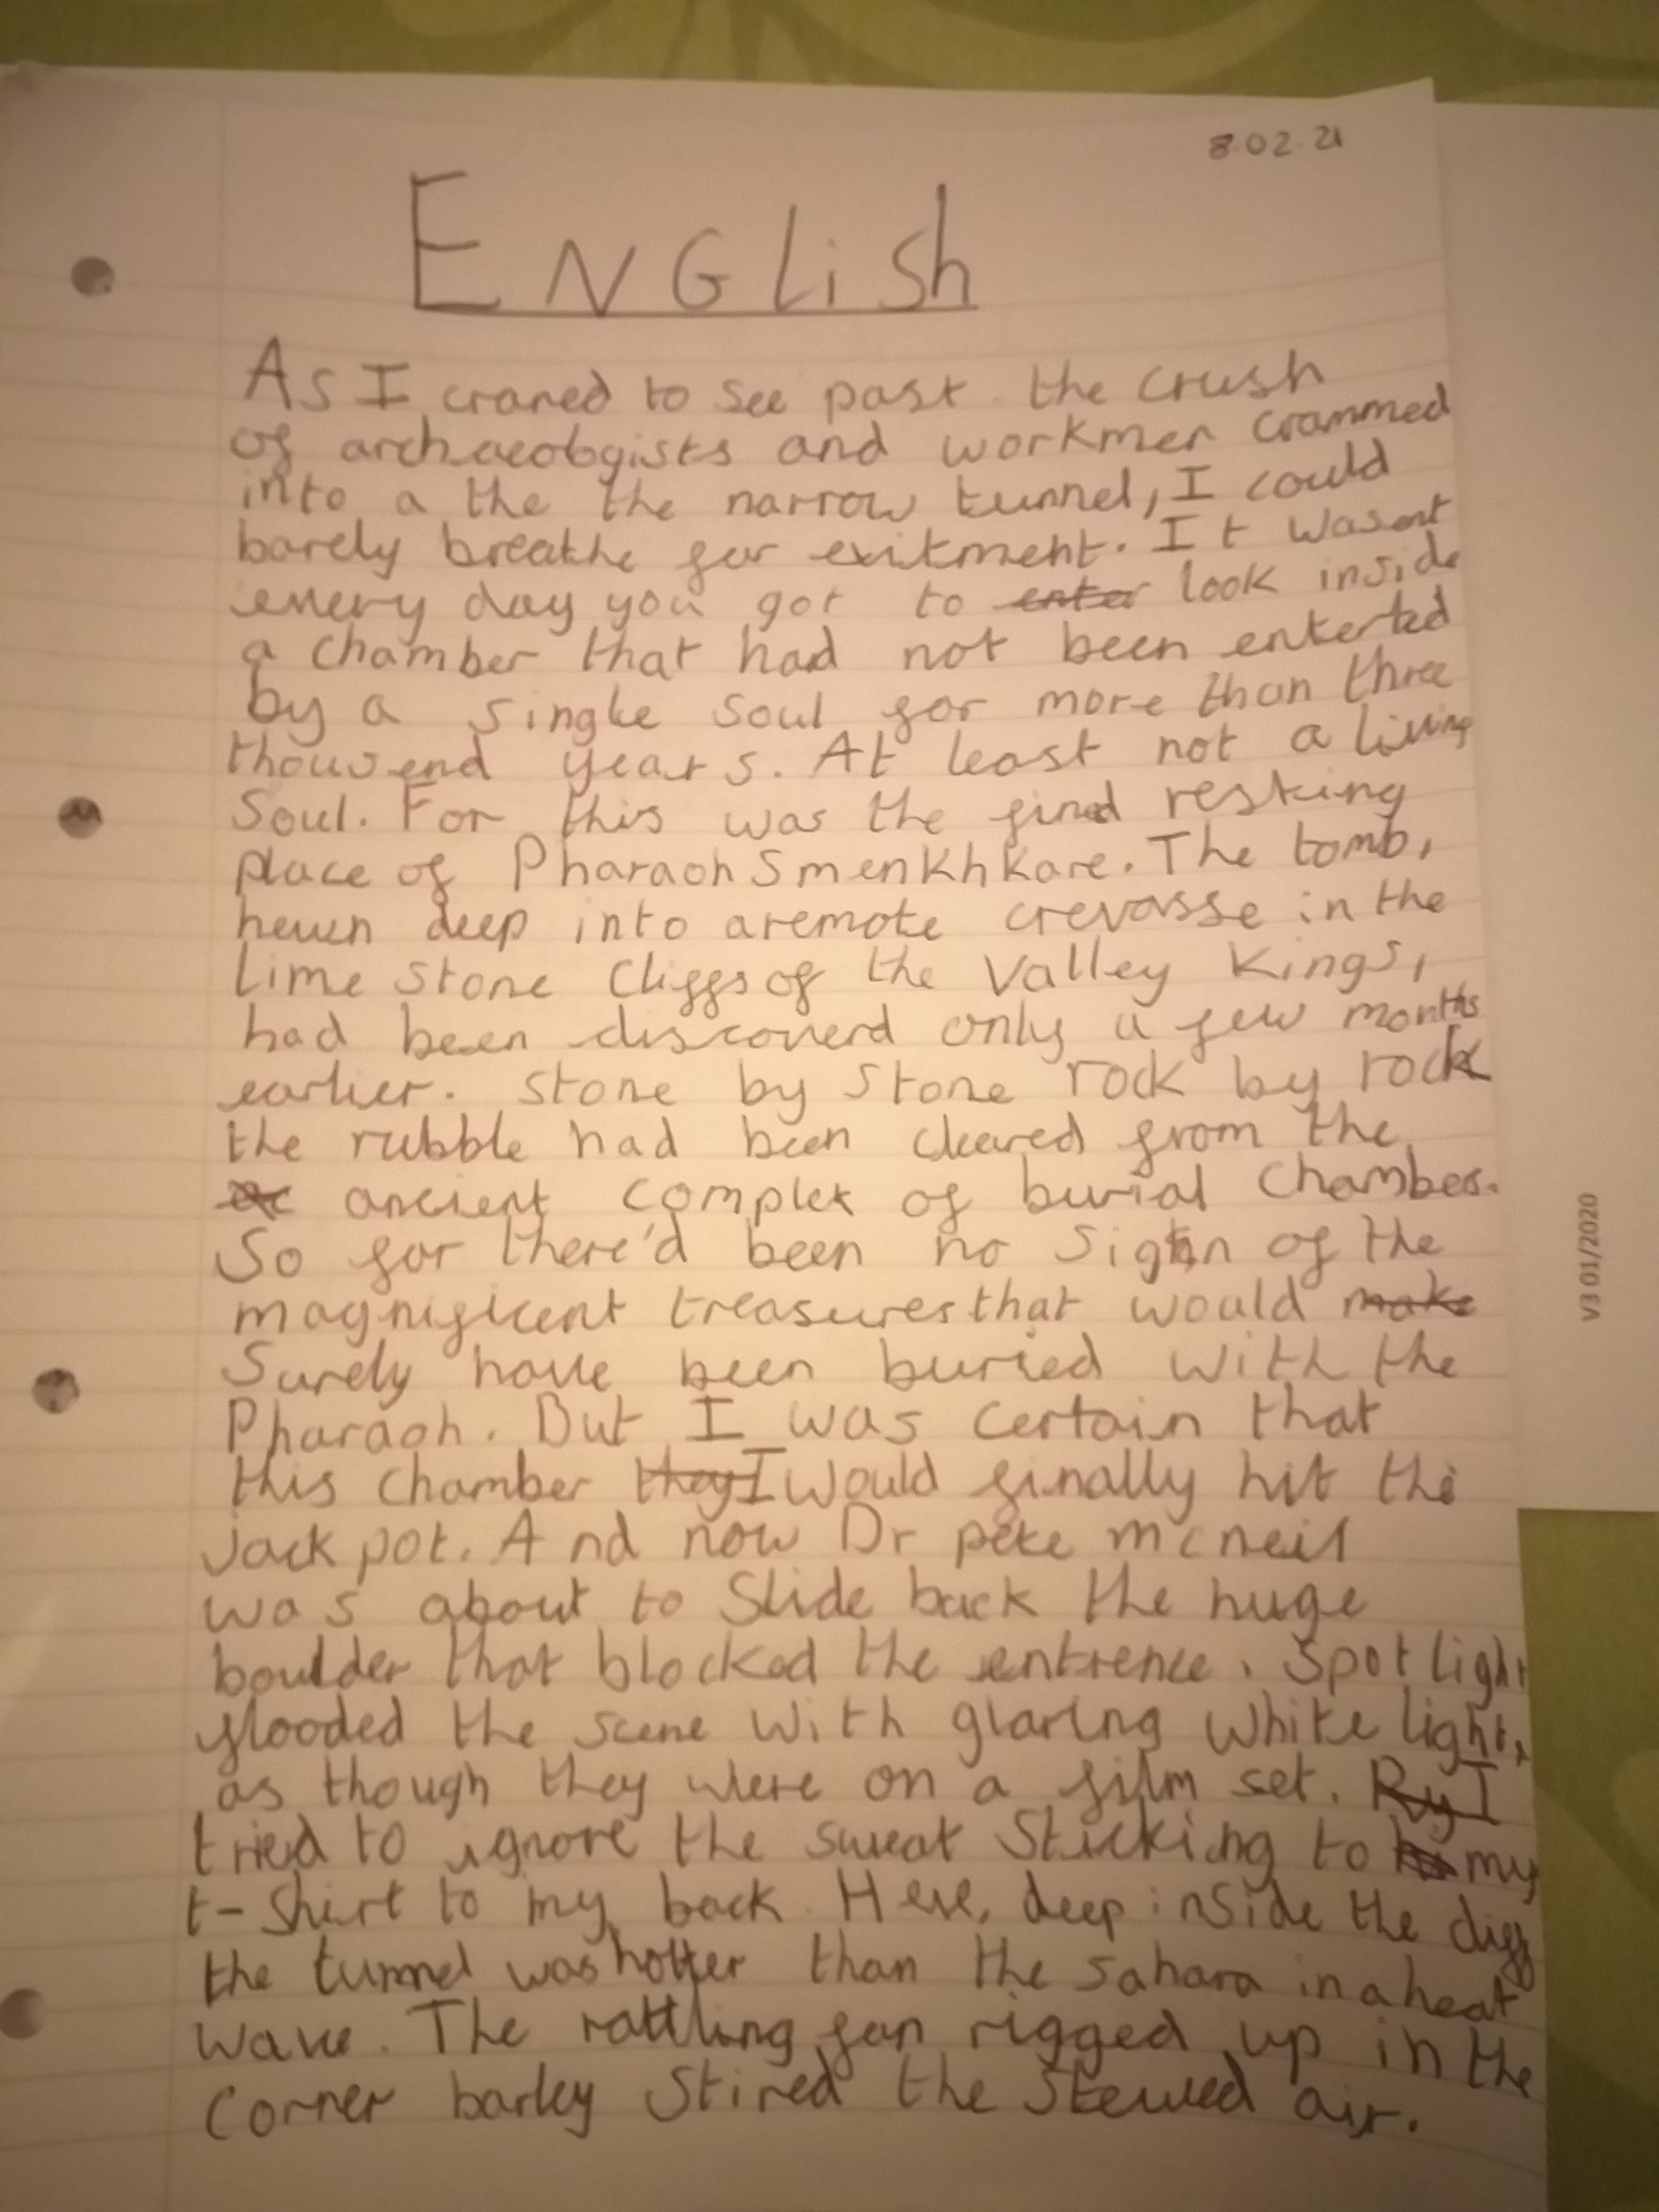 8.02.21
ENGLish
As I craned to see past the crush
of archaeologists and workmen crammed
into a the the narrow tunnel, I could
barely breathe for exitment. It wasent
every day you got to enter look inside
a chamber that had not been enterted
by a single soul for more than three
thousend years. At least not a living
Soul. For this was the final resting
place of Pharaoh Smenkhkare. The tomb,
hewen deep into aremote crevasse in the
lime stone cliffs of the Valley Kings,
had been discoverd only a few months
earlier. stone by stone rock by rock
the rubble had been cleared from the
ancient complex of burial chambes.
So far there'd been no sign of the
magnificent treasures that would make
Surely have been buried with the
Pharaoh. But I was certain that
this chamber they I would finally hit the
jack pot. And now Dr pete mcneil
was about to slide back the huge
boulder that blocked the entrence. Spot light
flooded the scene with glaring white light,
as though they were on a film set. Ry I
tried to ignore the sweat sticking to his my
t-shirt to my back. Here, deep inside the cliff
the tunnel was hotter than the sahara in a heat
wave. The rattling fan rigged up in the
corner barley stired the stewed air.
V3 01/2020